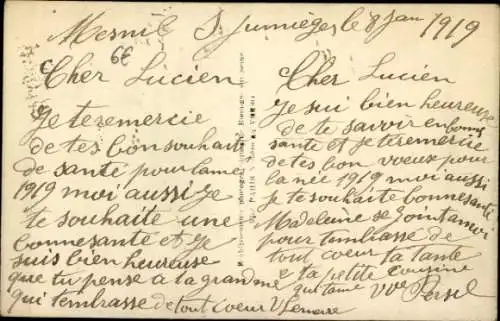 Mesnil S Jumièges, le 8 Jan 1919
6€
Cher Lucien
Je te remercie
de tes bon souhaits
de santé pour lanné
1919 moi aussi Je
te souhaite une
bonne santé et Je
suis bien heureuse
que tu pense a ta grandme
qui tembrasse de tout coeur V
Cher Lucien
Je sui bien heureuse
de te savoir en bonne
santé et Je te remercie
de tes bon voeux pour
la née 1919 moi aussi
Je te souhaite bonne santé
Madeleine se Joint a moi
pour tembrasse de
tout coeur ta tante
& ta petite cousine
qui taime Vve Persil